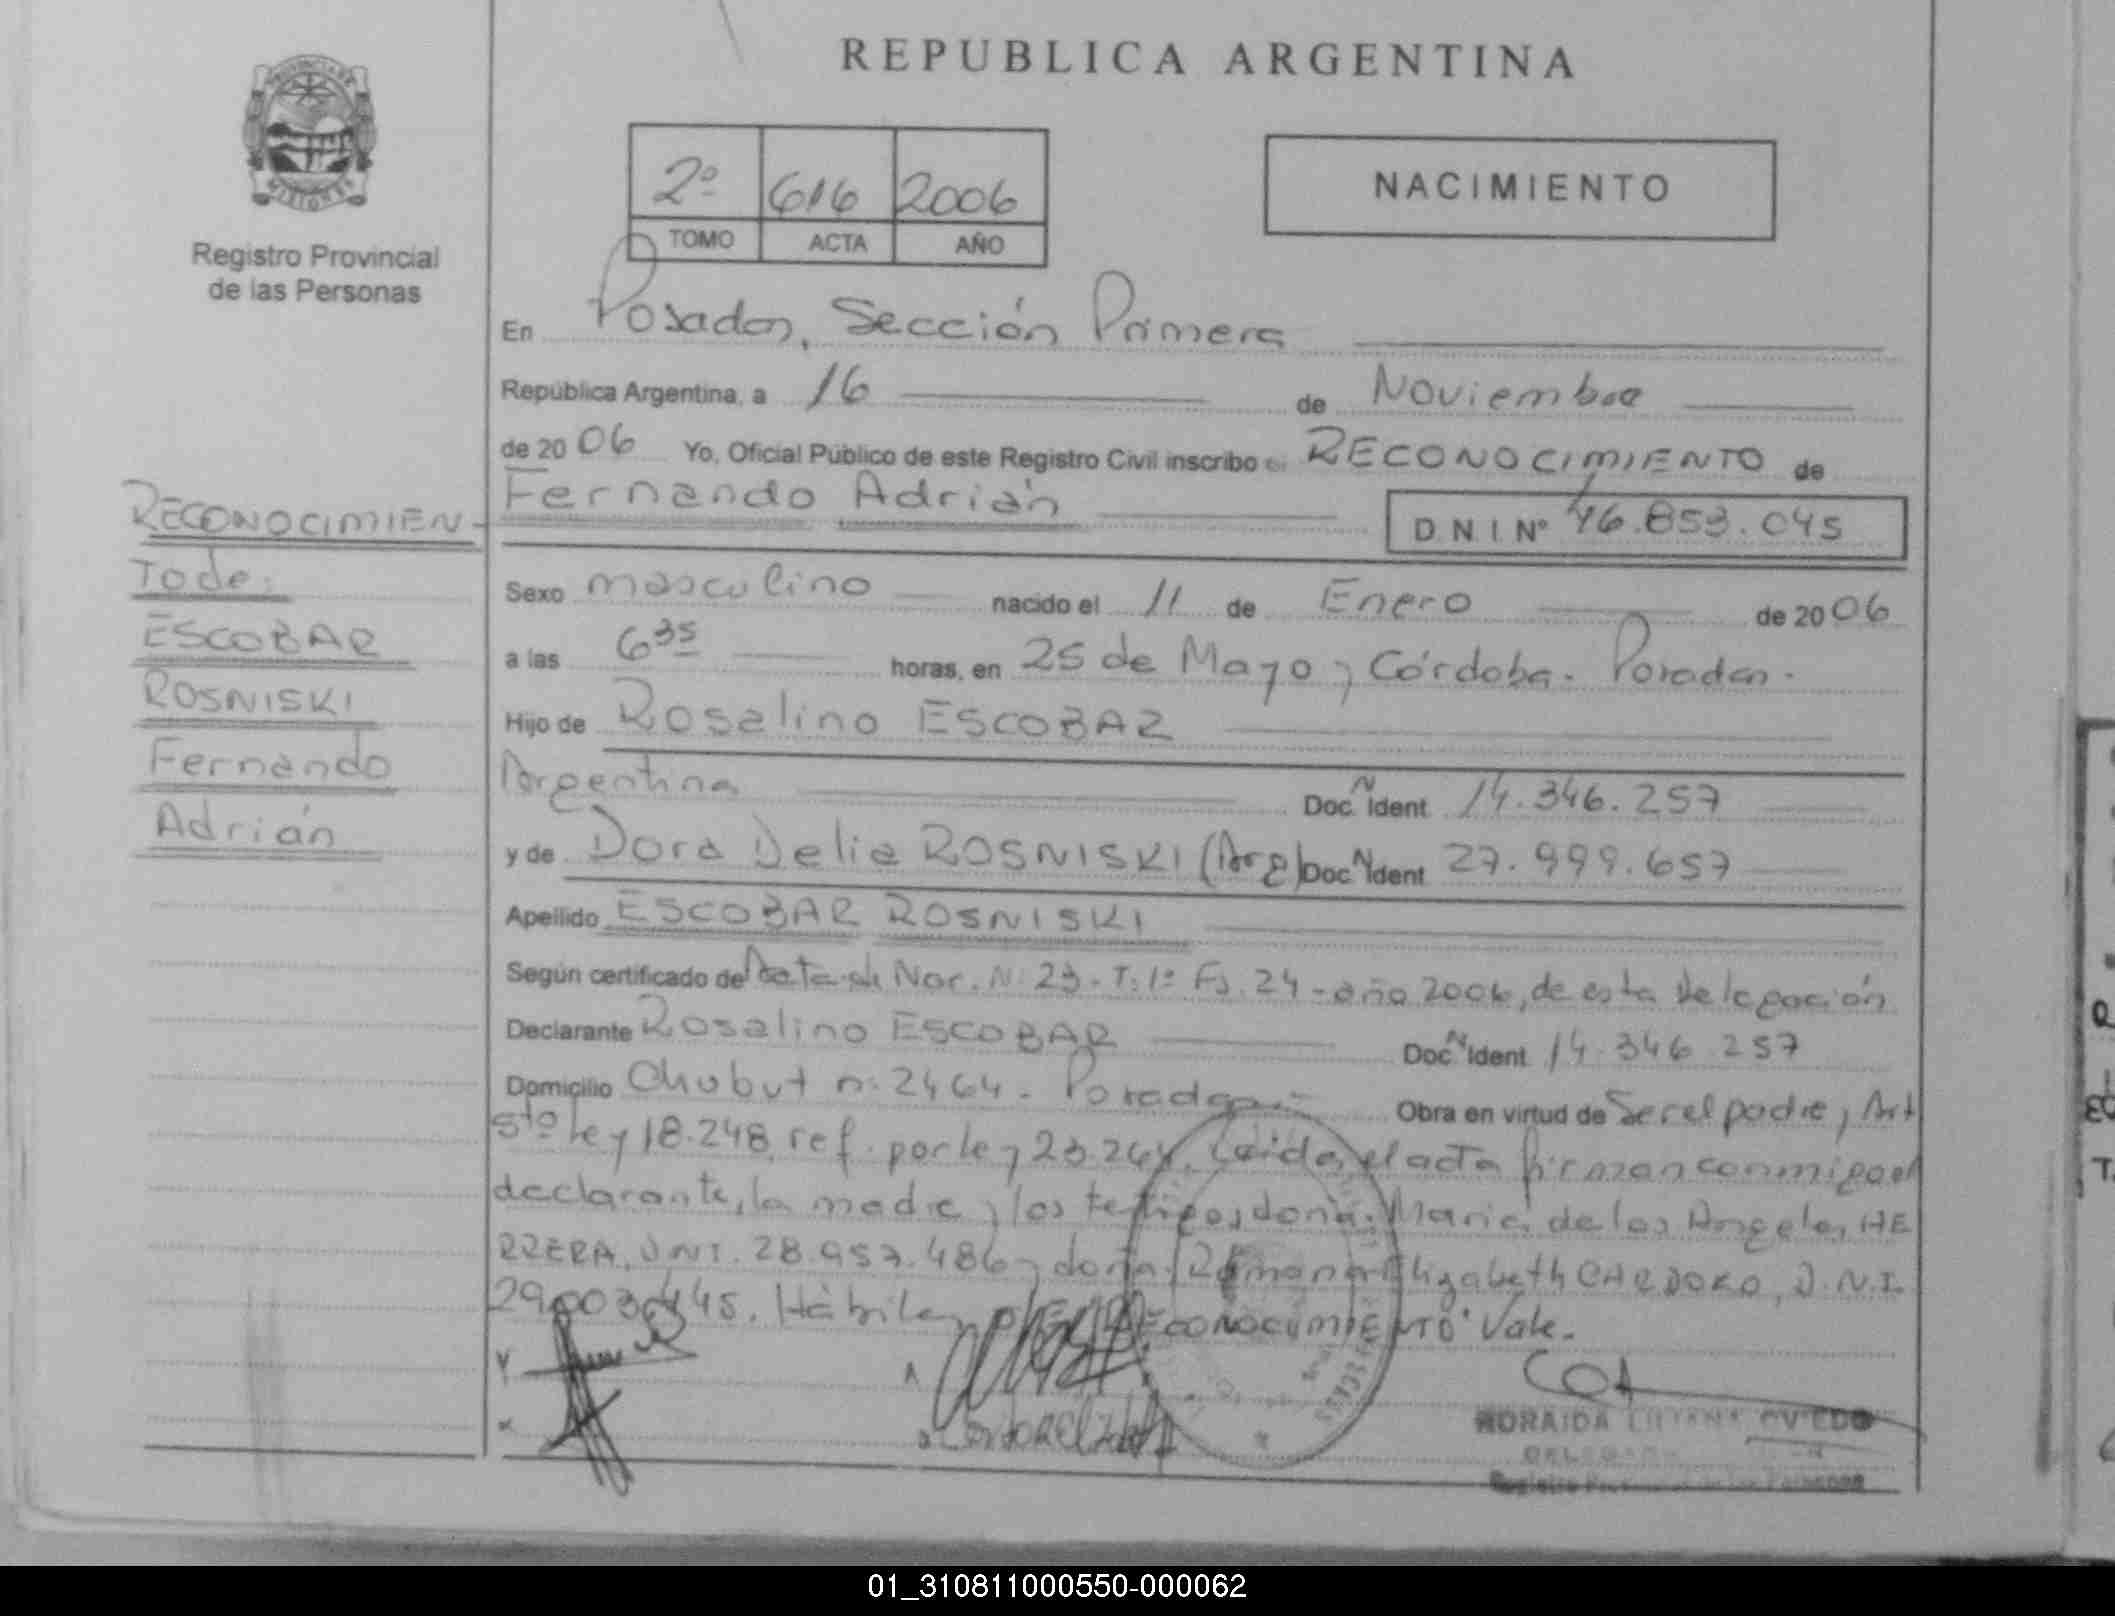 REPUBLICA ARGENTINA
PROVINCIA DE
MISIONES
Registro Provincial
de las Personas
2º 616 2006
TOMO ACTA AÑO
NACIMIENTO
En Posadas, Sección Primera
República Argentina, a 16 de Noviembre
de 2006 Yo, Oficial Público de este Registro Civil inscribo RECONOCIMIENTO de
Fernando Adrián
D.N.I. Nº 46.853.045
Sexo masculino nacido el 11 de Enero de 2006
a las 6 35 horas, en 25 de Mayo y Córdoba. Posadas.
Hijo de Rosalino ESCOBAR
Argentina Doc. N Ident 14.346.257
y de Dora Delia ROSNISKI (Arg) Doc. N Ident 27.999.657
Apellido ESCOBAR ROSNISKI
Según certificado de Acta de Nac. Nº 23 - T: 1º Fs. 24 - año 2006, de esta Delegación
Declarante Rosalino ESCOBAR Doc. N Ident 14.346.257
Domicilio Chubut nº 2464 - Posadas Obra en virtud de Ser el padre, Art
5to ley 18.248, ref. por ley 23.264. Leida el acta firman conmigo el
declarante, la madre y los testigos doña María de los Angeles HE
RRERA, DNI. 28.957.486 y doña Ramona Elizabeth CARDOZO, D.N.I.
29.003.445. Hábiles RECONOCIMIENTO" Vale.
RECONOCIMIEN-
To de:
ESCOBAR
ROSNISKI
Fernando
Adrián
OVIEDO
01_310811000550-000062